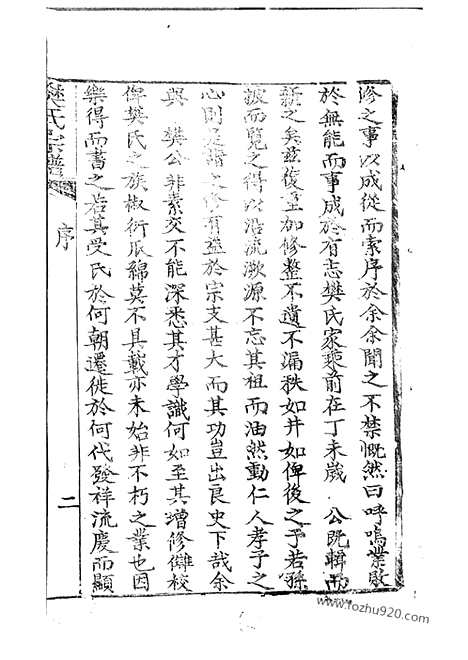 修之事以成從而索序於余余聞之不禁慨然曰呼嗚業敗
於無能而事成於有志樊氏家乗前在丁未歲 公既輯而
新之矣茲復重加修整不遺不漏秩如井如俾後之子若孫
披而覽之得以沿流溯源不忘其祖而油然動仁人孝子之
心則是譜之修有益於宗支甚大而其功豈出良史下哉余
與 樊公非素交不能深悉其才學識何如至其增修讎校
俾樊氏之族椒衍瓜綿莫不具載亦未始非不朽之業也因
樂得而書之若其受氏於何朝遷徙於何代發祥流慶而顯
樊氏宗譜
序
二
www.fozhu920.com